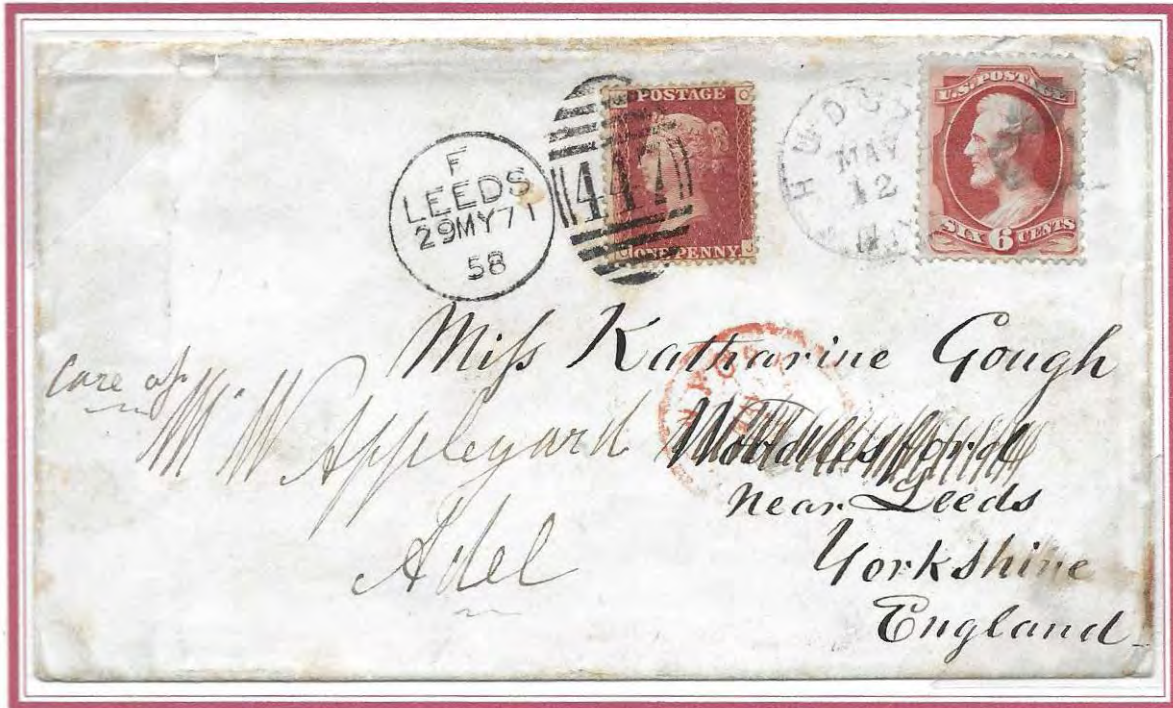 F
LEEDS
29MY71
58
447
POSTAGE
C
J
ONE PENNY
J
C
MAY
12
U.S. POSTAGE
SIX 6 CENTS
Miss Katharine Gough
Care of
M W Appleyard
Woodlesford
Near Leeds
Adel
Yorkshire
England